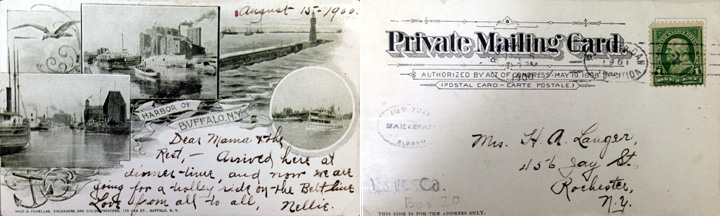 August 15 - 1900.
HARBOR OF
BUFFALO, N.Y.
Dear Mama & the
Rest, - Arrived here at
dinner-time, and now we are
going for a trolley ride on the Belt line
Love from all to all, Nellie.
BUFFALO, N.Y.
Private Mailing Card.
AUTHORIZED BY ACT OF CONGRESS - MAY 19. 1898.
(POSTAL CARD - CARTE POSTALE)
1901
NEW YORK
Mrs. H. A. Langer,
456 Jay St.
Rochester,
N.Y.
Co.
Box 20
THIS SIDE IS FOR THE ADDRESS ONLY.